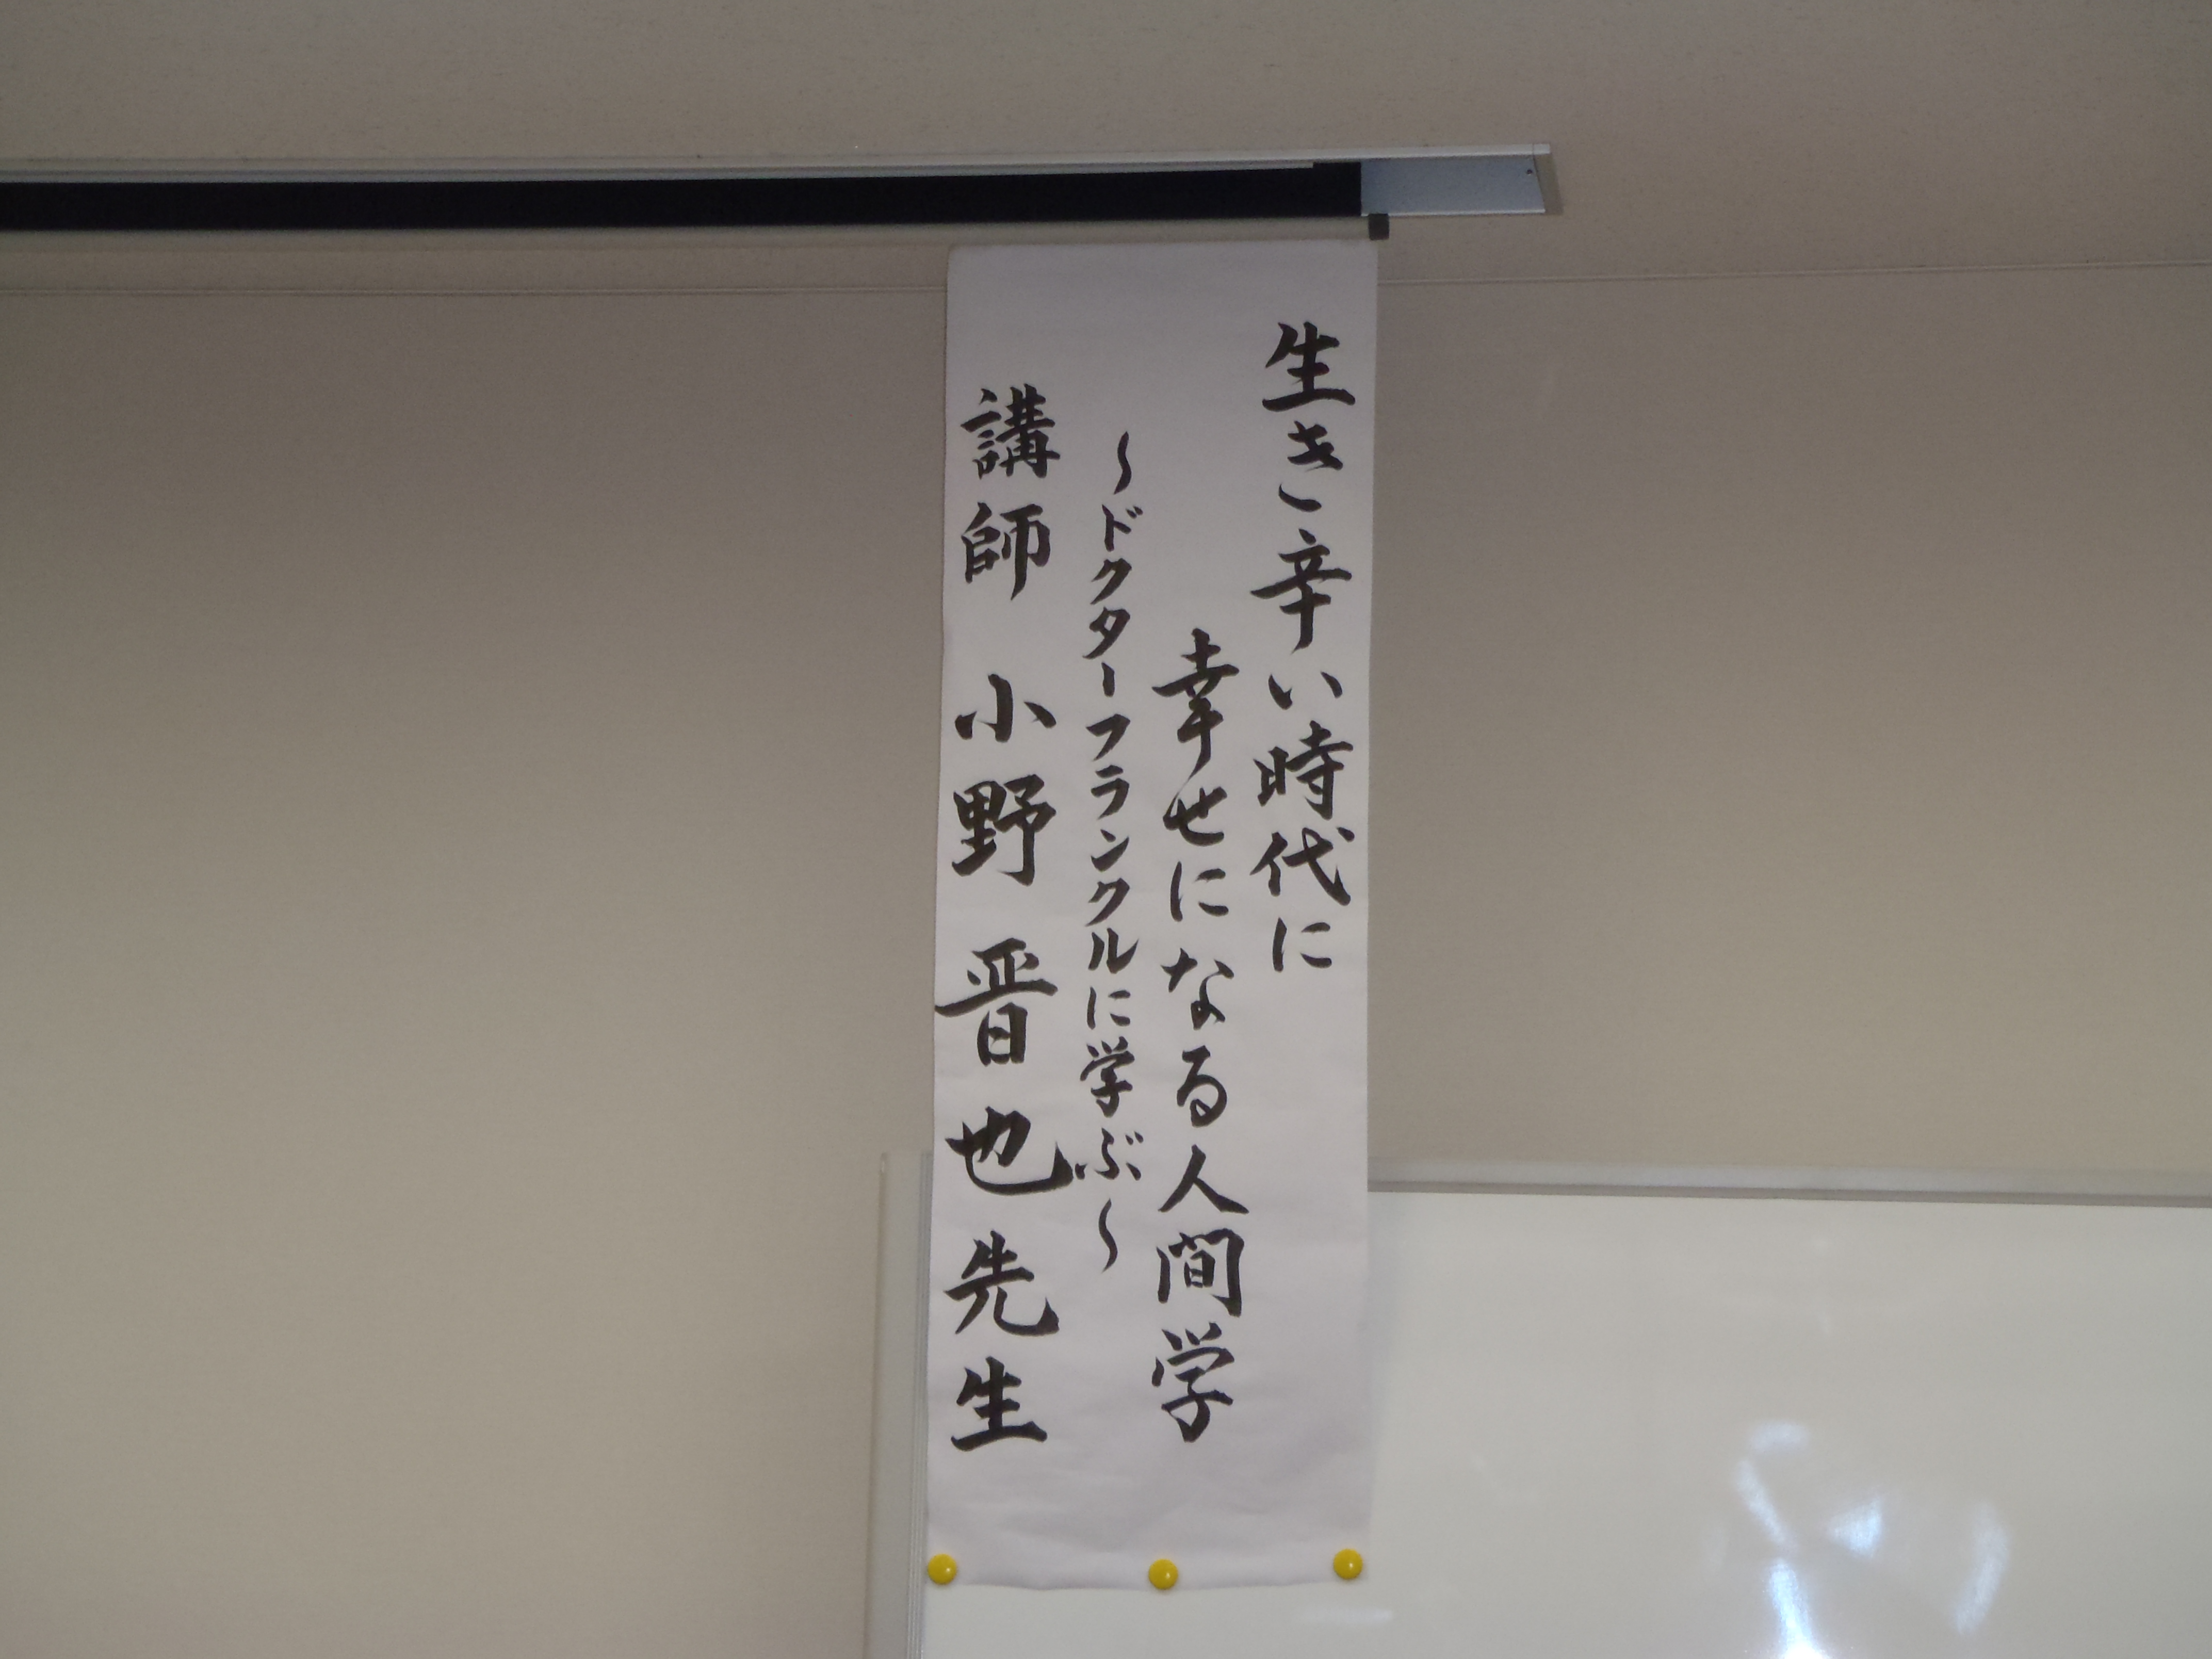 生き辛い時代に
幸せになる人間学
～ドクターフランクルに学ぶ～
講師 小野晋也先生